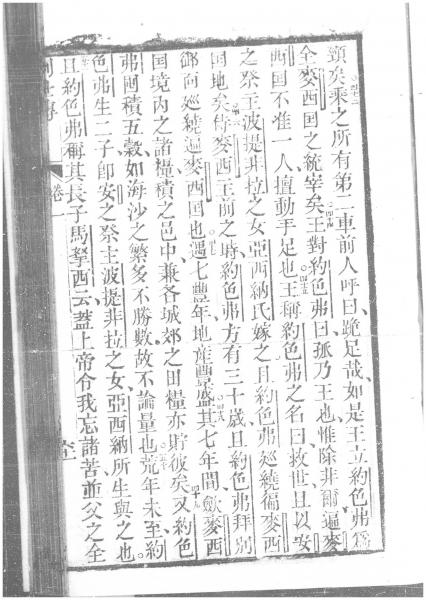 頸矣乘之所有第二車前人呼曰跪足哉如是王立約色弗爲
全麥西国之統宰矣王對約色弗曰孤乃王也惟除非爾遍麥
西国不准一人擅動手足也王稱約色弗之名曰救世且以安
之祭主波提非拉之女亞西納氏嫁之且約色弗廵繞徧麥西
国地矣侍麥西王前之時約色弗方有三十歲且約色弗拜別
御向廵繞遍麥西国也遇七豐年地產豐盛其七年間歛麥西
国境內之諸糧積之邑中兼各城郊之田糧亦貯彼矣又約色
弗囤積五穀如海沙之繁多不勝數故不論量也荒年未至約
色弗生二子卽安之祭主波提非拉之女亞西納所生與之也
且約色弗稱其長子馬拏西云蓋上帝令我忘諸苦並父之全
創世
卷一